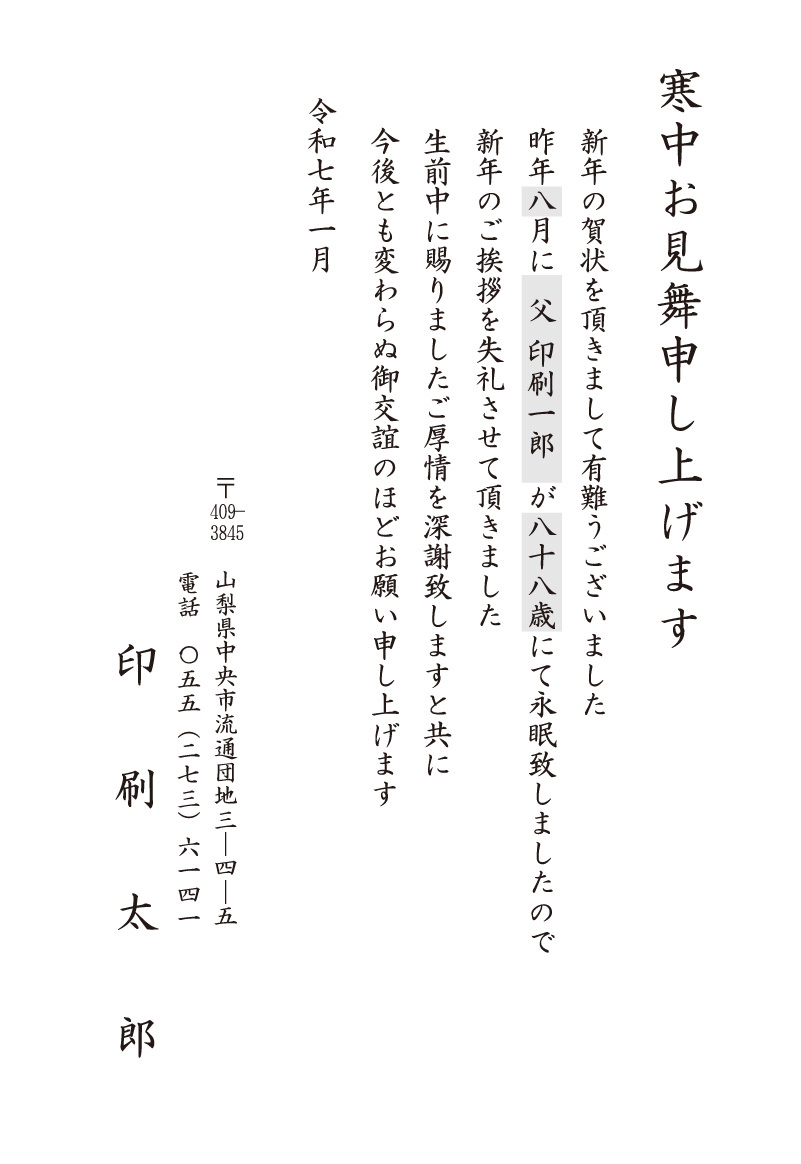 寒中お見舞申し上げます
新年の賀状を頂きまして有難うございました
昨年八月に 父 印刷一郎 が八十八歳にて永眠致しましたので
新年のご挨拶を失礼させて頂きました
生前中に賜りましたご厚情を深謝致しますと共に
今後とも変わらぬ御交誼のほどお願い申し上げます
令和七年一月
〒409-3845 山梨県中央市流通団地三―四―五
電話 〇五五(二七三)六一四一
印刷太郎